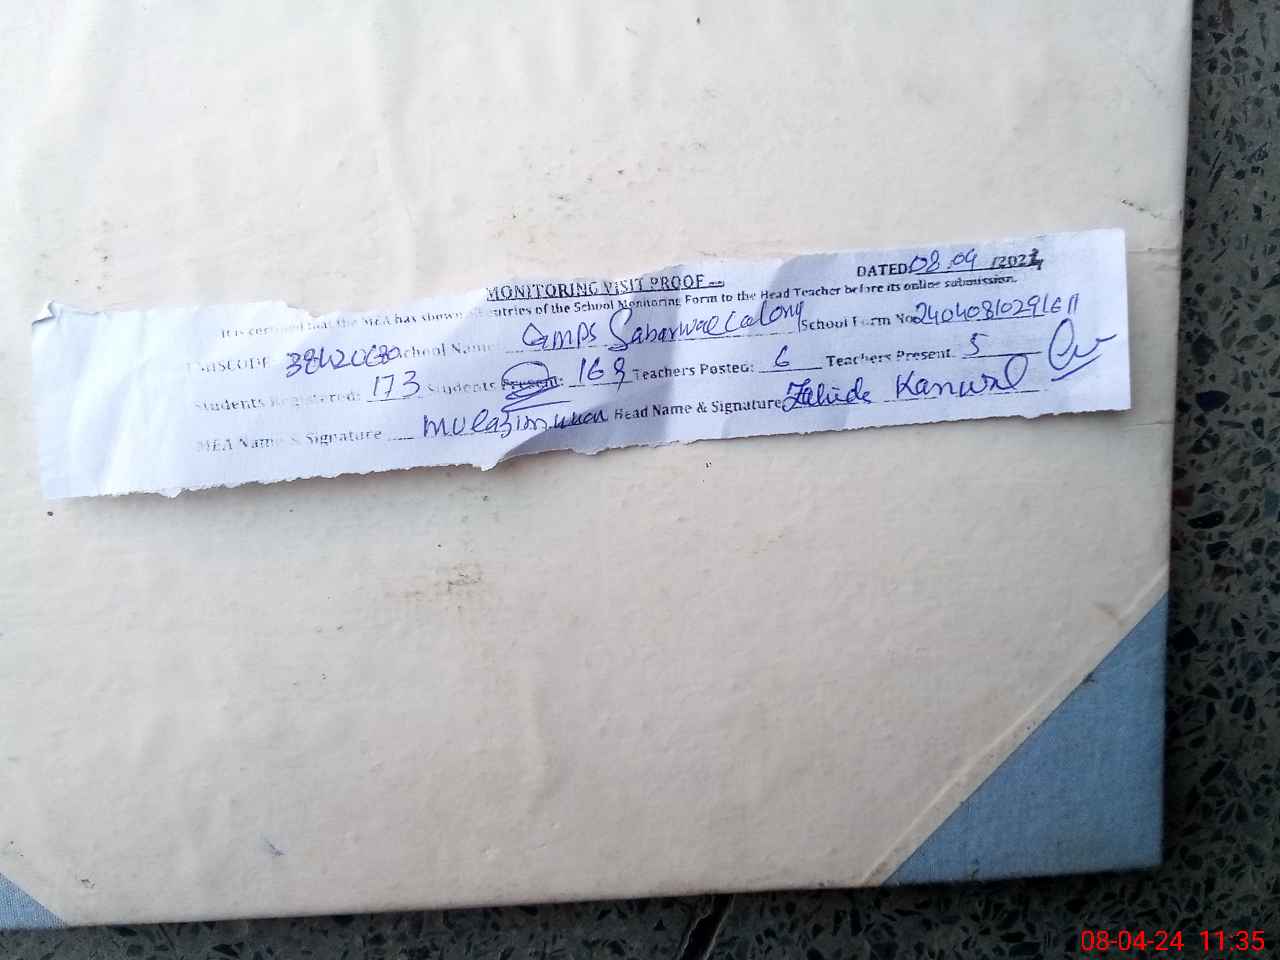 MONITORING VISIT PROOF
DATED 08.04 /2024
It is certified that the MEA has shown all entries of the School Monitoring Form to the Head Teacher before its online submission.
EMISCODE 38420680 School Name: GMPS Sabarwal Colony School Form No 24040810291611
Students Registered: 173 Students Present: 169 Teachers Posted: 6 Teachers Present: 5
MEA Name & Signature Head Name & Signature Zahida Kanwal
08-04-24 11:35